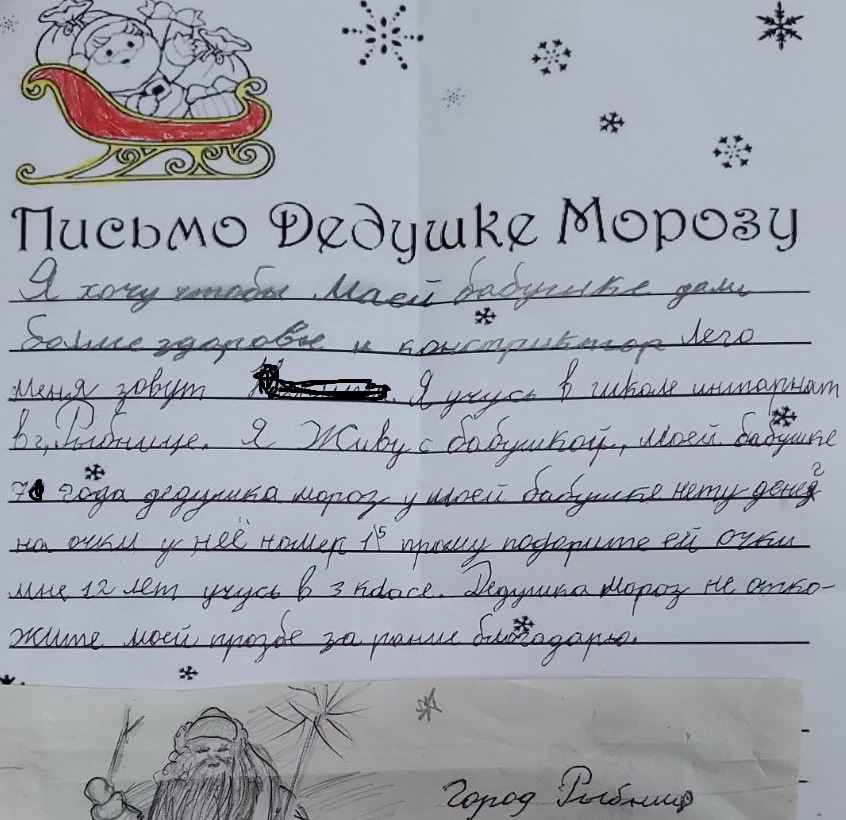 Письмо Дедушке Морозу
Я хочу чтобы Маей бабушке дали
болше здоровье и конструктор Лего
меня зовут Я учусь в школе интарнат
в г. Рыбнице. Я Живу с бабушкой, Моей бабушке
71 года дедушка мороз у моей бабушке нету денег
на очки у неё номер 15 прошу подарите ей очки
мне 12 лет учусь в 3 класе. Дедушка Мороз не отко-
жите моей прозбе за рание благодарю.
Город Рыбница